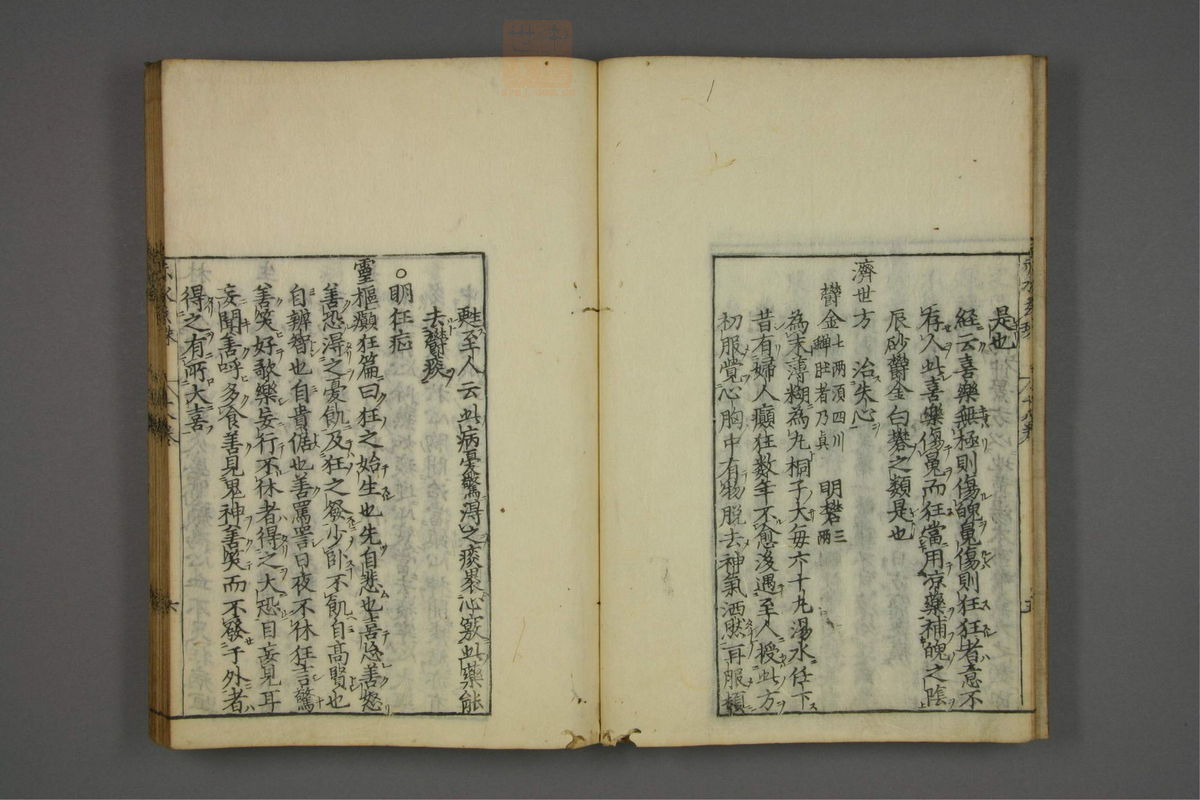 是也
經云喜樂無極則傷魄魄傷則狂狂者意不
存人此喜樂傷魄而狂當用凉藥補魄之陰
辰砂欝金白礬之類是也
濟世方　治失心
欝金七兩須四川蟬肚者乃眞　明礬三兩
為末薄糊為丸桐子大每六十丸湯水任下
昔有婦人癲狂数年不愈後遇至人授此方
初服覚心胸中有物脱去神氣洒然再服頓
甦至人云此病憂驚得之痰褁心竅此藥能
去欝痰
○明狂症
靈樞癲狂篇曰狂之始生也先自悲也喜忘善怒
善恐得之憂飢及狂之發少卧不飢自高賢也
自辨智也自貴倨也善罵詈日夜不休狂言驚
善笑好歌樂妄行不休者得之大恐目妄見耳
妄聞善呼多食善見鬼神善笑而不發于外者
得之有所大喜